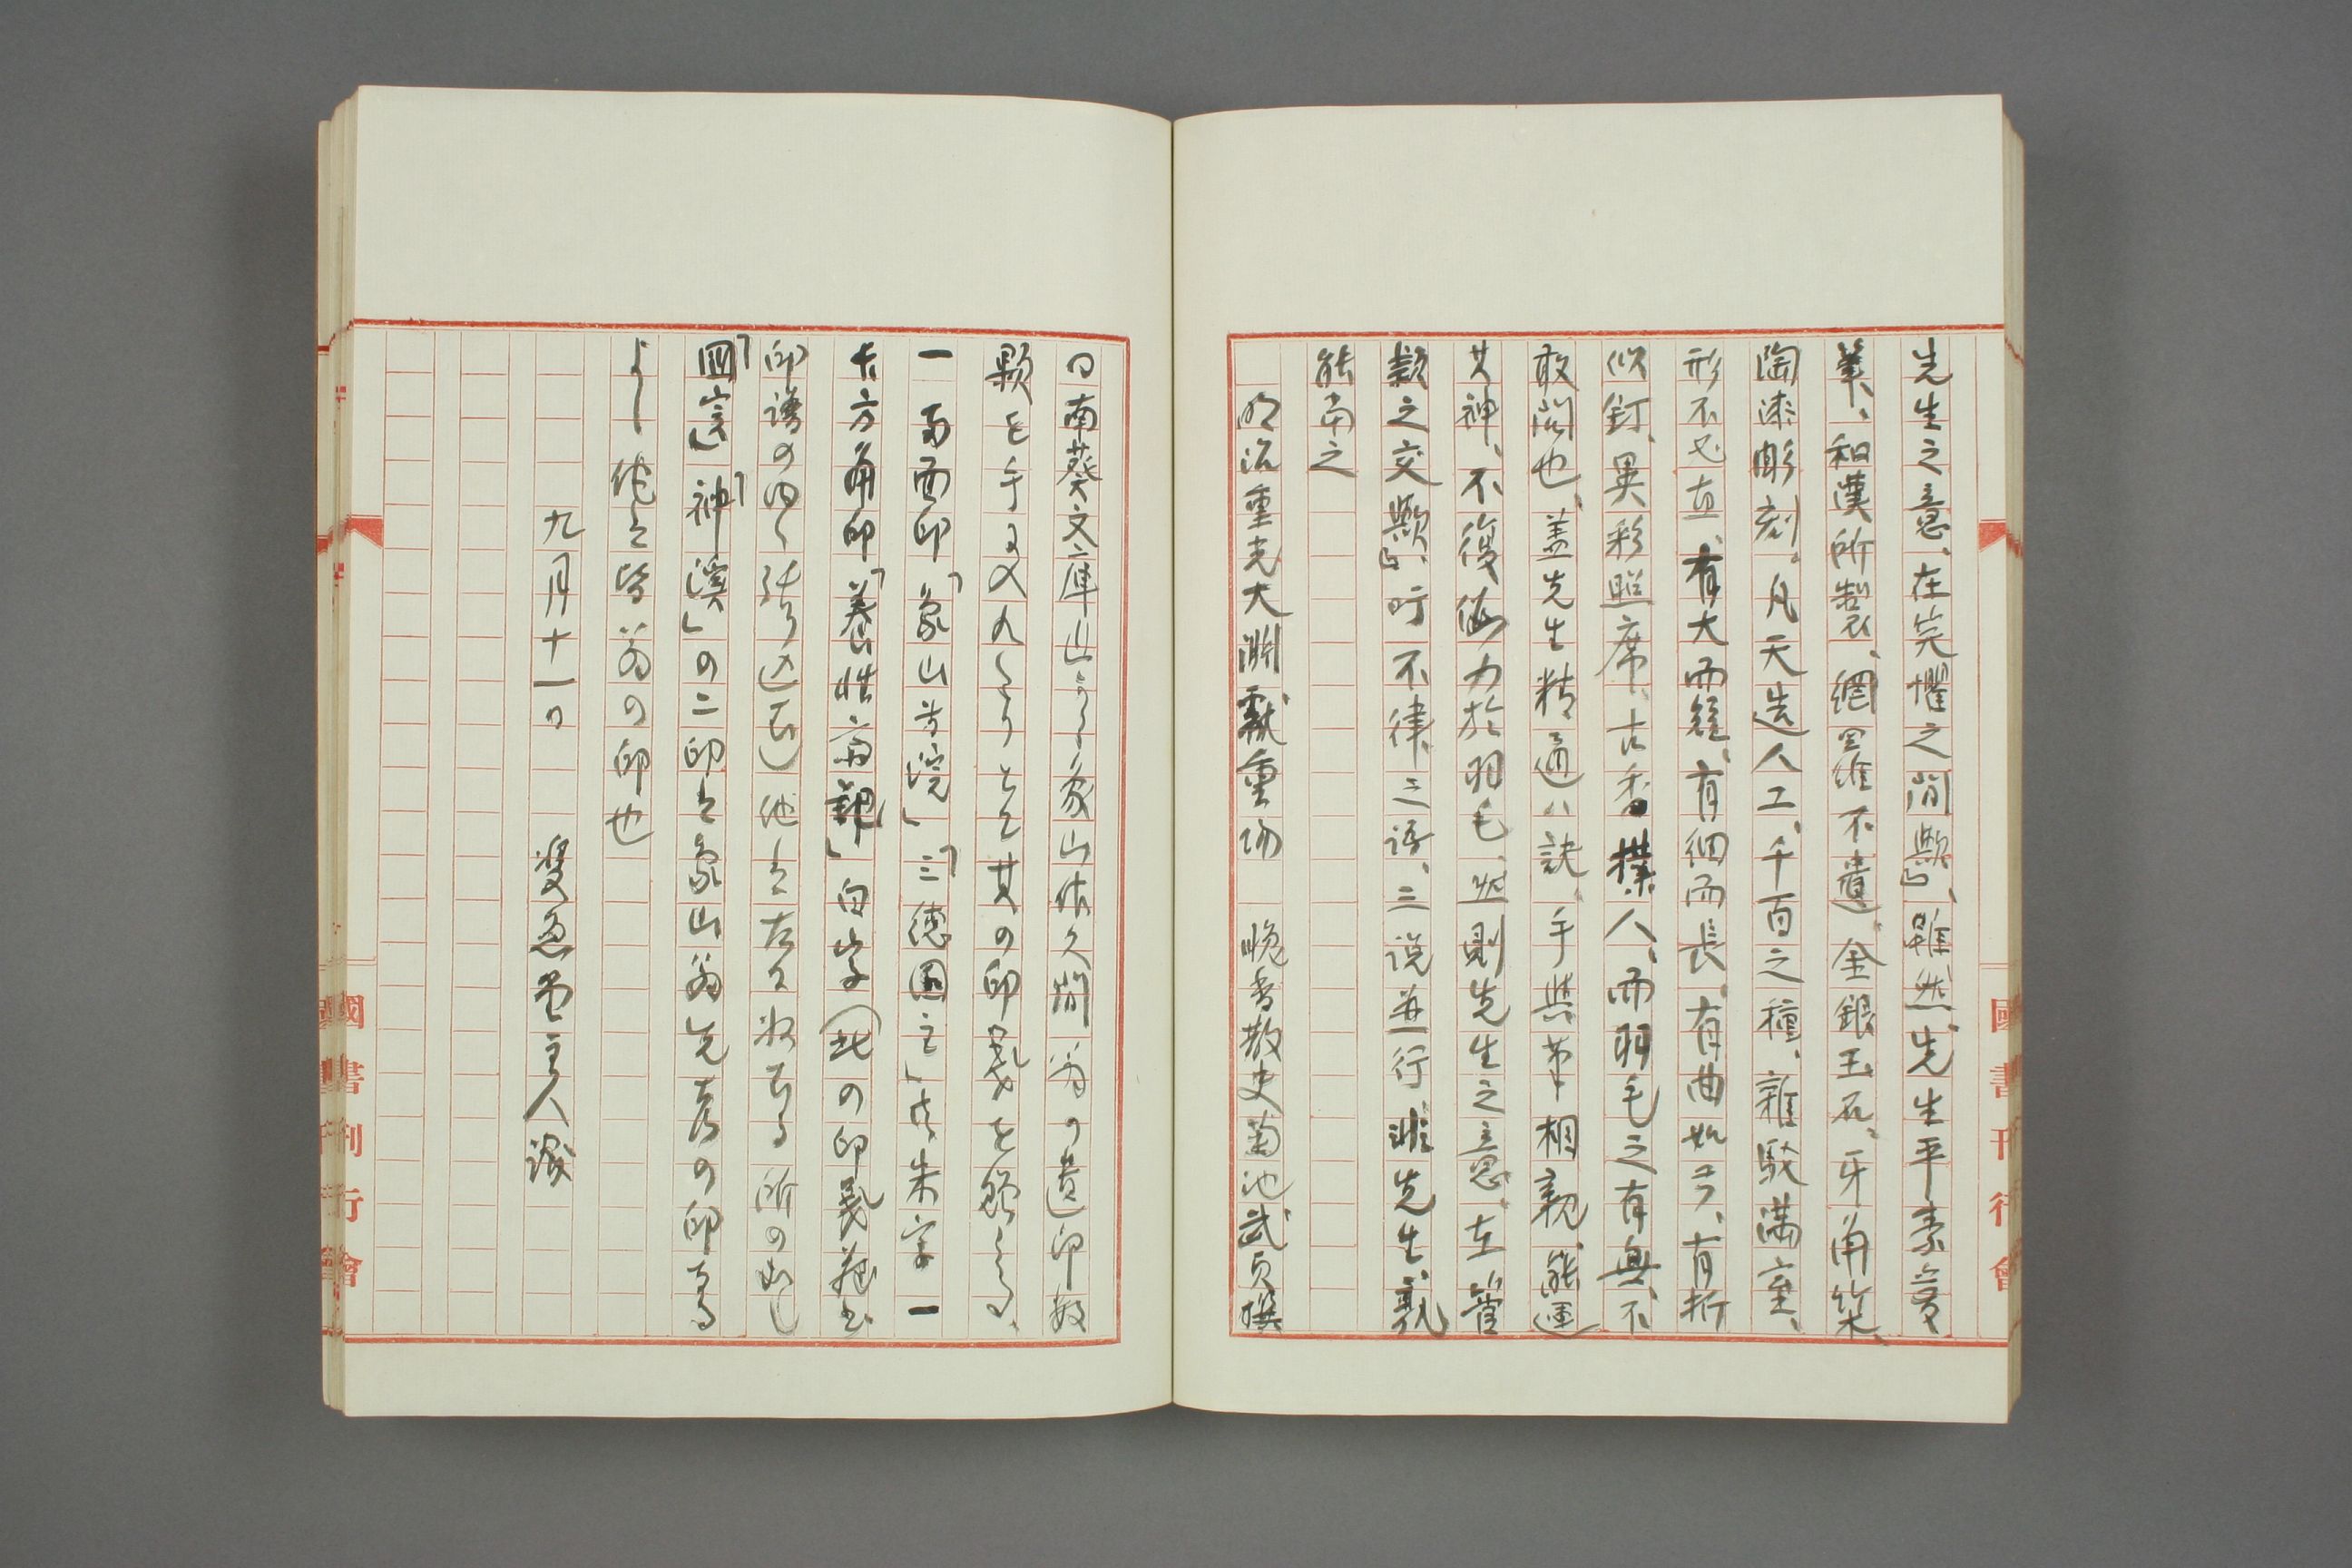 先生之意、在筦懼之間歟』、雖然、先生平素愛
筆、和漢所製、網羅不遺、金銀玉石、牙角築、
陶漆彫刻、凡天造人工、千百之種、雜駁満室、
形不必直、有大而䡖、有細而長、有曲如弓、有折
似釘、異彩照席、古香撲人、而羽毛之有無、不
敢問也、盖先生精通八訣、手與筆相親、能運
其神、不復仮力於羽毛、然則先生之意、在管
類之交歟』、吁不律之語、二説並行、非先生、孰
能当之
明治重光大淵獻重陽　晚香散史菊池武貞撰
南葵文庫より象山佐久間翁の遺印数
顆を手に入れたりとて其の印影を贈らる、
一　両面印「象山書院」「三徳園主」共朱字　一
大方角印「養性斎　」白字(此の印影　は
印譜の内へ張り込む)他は左に収むる所の如し
「　」「神溪」の二印は象山翁先考の印なる
よし他は皆翁の印也
九月十一日　　雙魚堂主人識
國書刊行會
國書刊行會